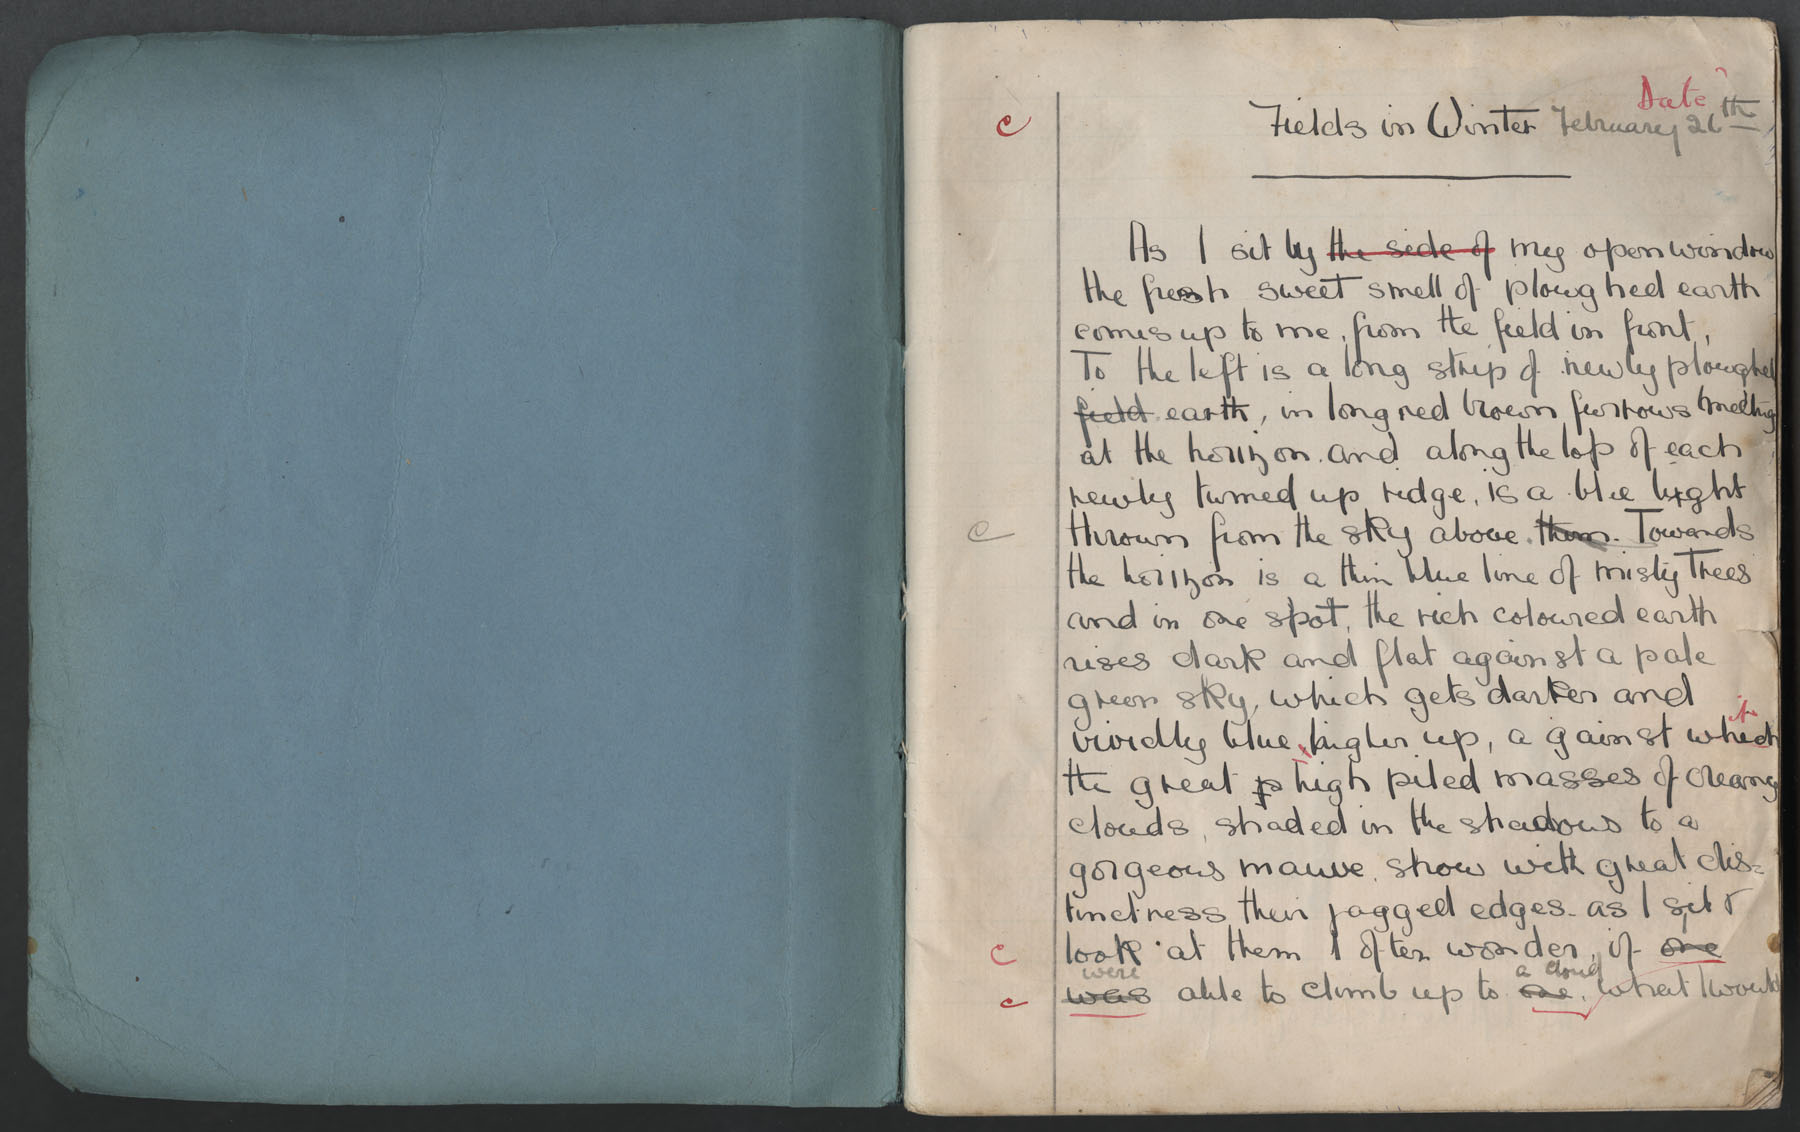 Date?
c Fields in Winter February 26th
As I sit by the side of my open window
the fresh sweet smell of ploughed earth
comes up to me, from the field in front,
To the left is a long strip of newly ploughed
field earth, in long red brown furrows meeting
at the horizon. and along the top of each
newly turned up ridge, is a blue light
c thrown from the sky above them. Towards
the horizon is a thin blue line of misty trees
and in one spot, the rich coloured earth
rises dark and flat against a pale
green sky, which gets darker and
vividly blue, higher up, against which
the great high piled masses of creamy
clouds, shaded in the shadows to a
gorgeous mauve, show with great dis=
tinctness their jagged edges. as I sit &
c look at them I often wonder, if one
were a cloud
c was able to climb up to one, what I would